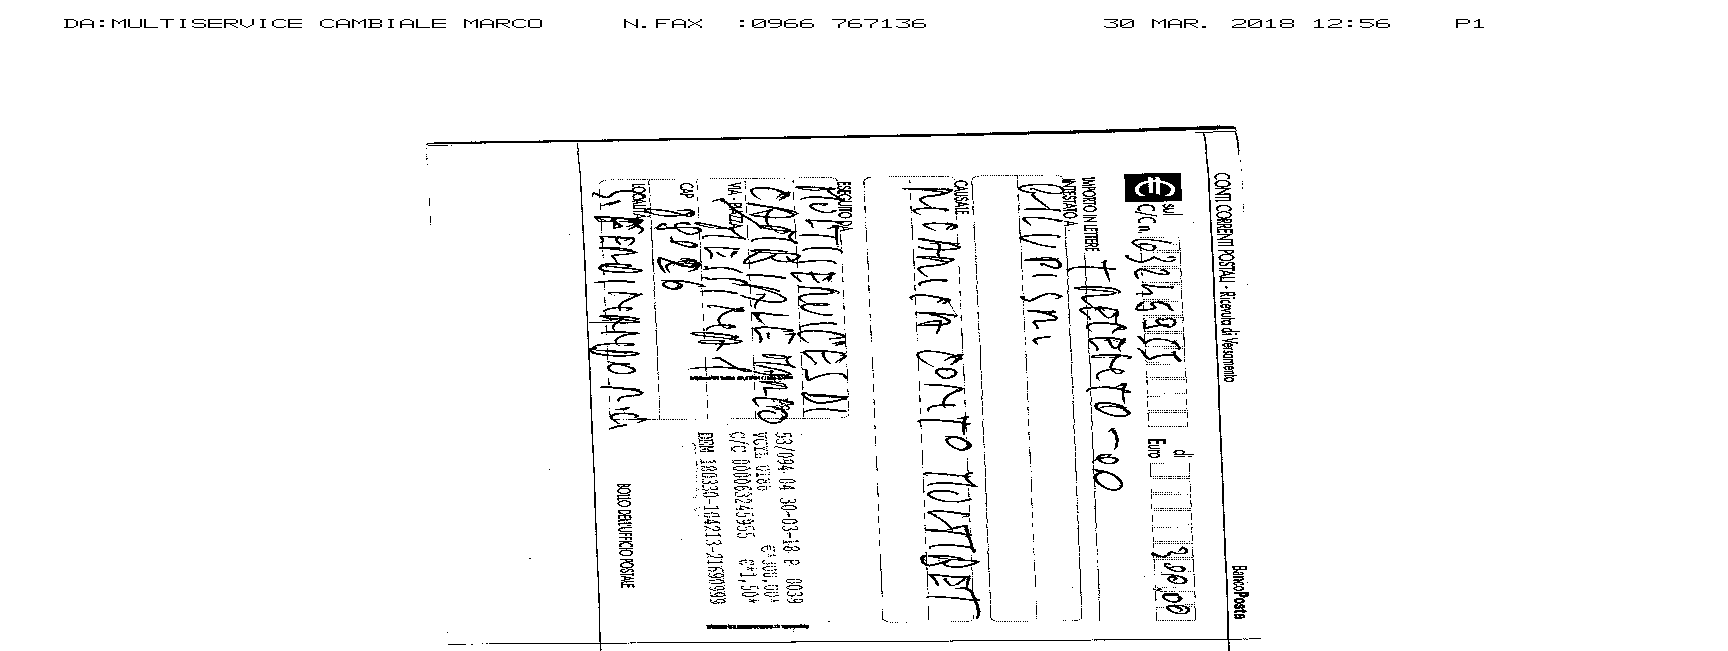 DA:MULTISERVICE CAMBIALE MARCO N.FAX :0966 767136 30 MAR. 2018 12:56 P1
CONTI CORRENTI POSTALI - Ricevuta di Versamento BancoPosta
€ sul C/C n. di Euro 300,00
IMPORTO IN LETTERE TRECENTO-00
INTESTATO A
CAUSALE
RICARICA CONTO MULTIBET
ESEGUITO DA
MULTISERVICES DI
CAMBIALE MARCO
VIA - PIAZZA
CAP 89026
LOCALITÀ
S. FERDINANDO R.C.
53/094 04 30-03-18 P 0039
VCYL
€*300,00*
C/C 000063245955 €*1,50*
BOLLO DELL'UFFICIO POSTALE